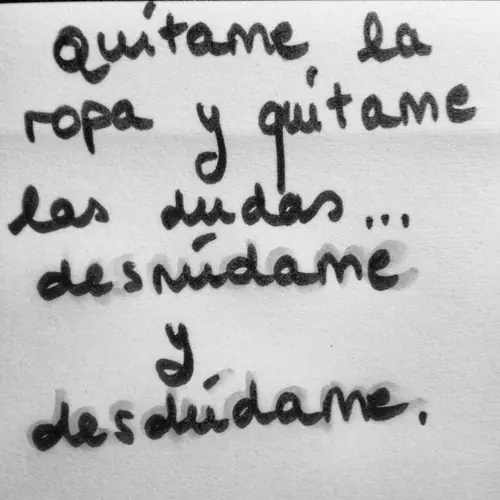 Quítame la
ropa y quítame
las dudas...
desnúdame
y
desdúdame.